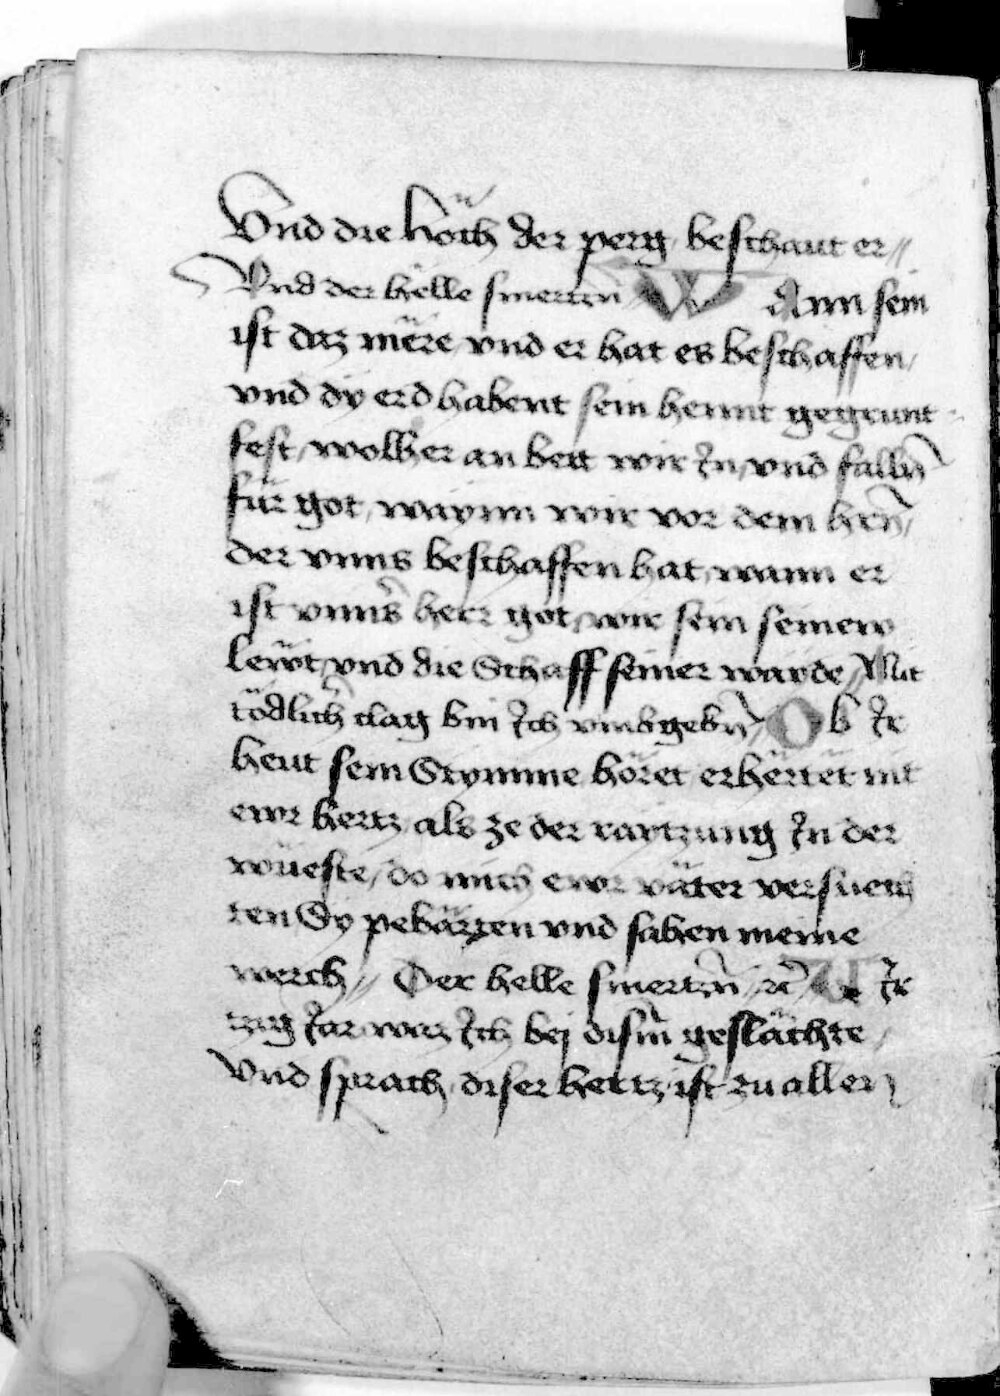 Vnd die höch der perg beschaut er //
Vnd der helle smerczn̄ W Ann sein
ist daz mere vnd er hat es beschaffen /
vnd dy erd habent sein hennt gegrunt
fest / wolher an bett wir Jn / vnd falln̄
für got / waynn wir vor dem hrn̄ /
der vnns beschaffen hat / wann er
ist vnns̄ herr got / wir sein seinew
lewt / vnd die Schaff seiner wayde // Mit
tödlich̄ clag bin Jch vmbgebn̄ // Ob Jr
heut sein Stymme höret erhertet nit
ewr hertz / als ze der raytzung Jn der
wüeste / do mich ewr väter versuech
ten Sy pebärten vnd sahen meine
werch // Der helle smertzn̄ / rc̄ / V Ir
tzig Jar waz Jch bej dism̄ geslächte /
Vnd sprach / diser hertz ist zu allen